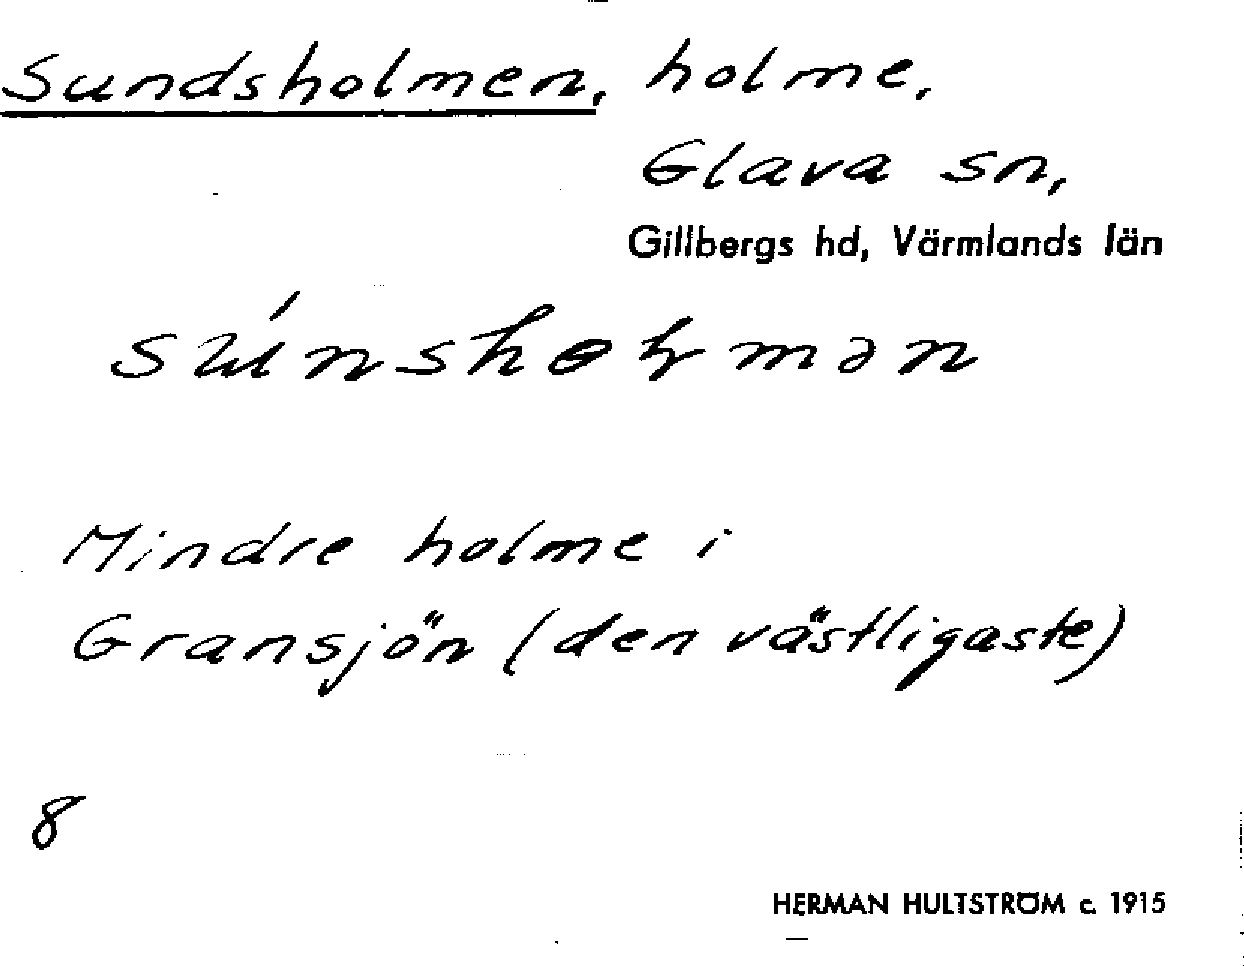 Sundsholmen, holme,
Glava sn,
Gillbergs hd, Värmlands län
Mindre holme i
Gransjön (den västligaste)
8
HERMAN HULTSTRÖM c. 1915